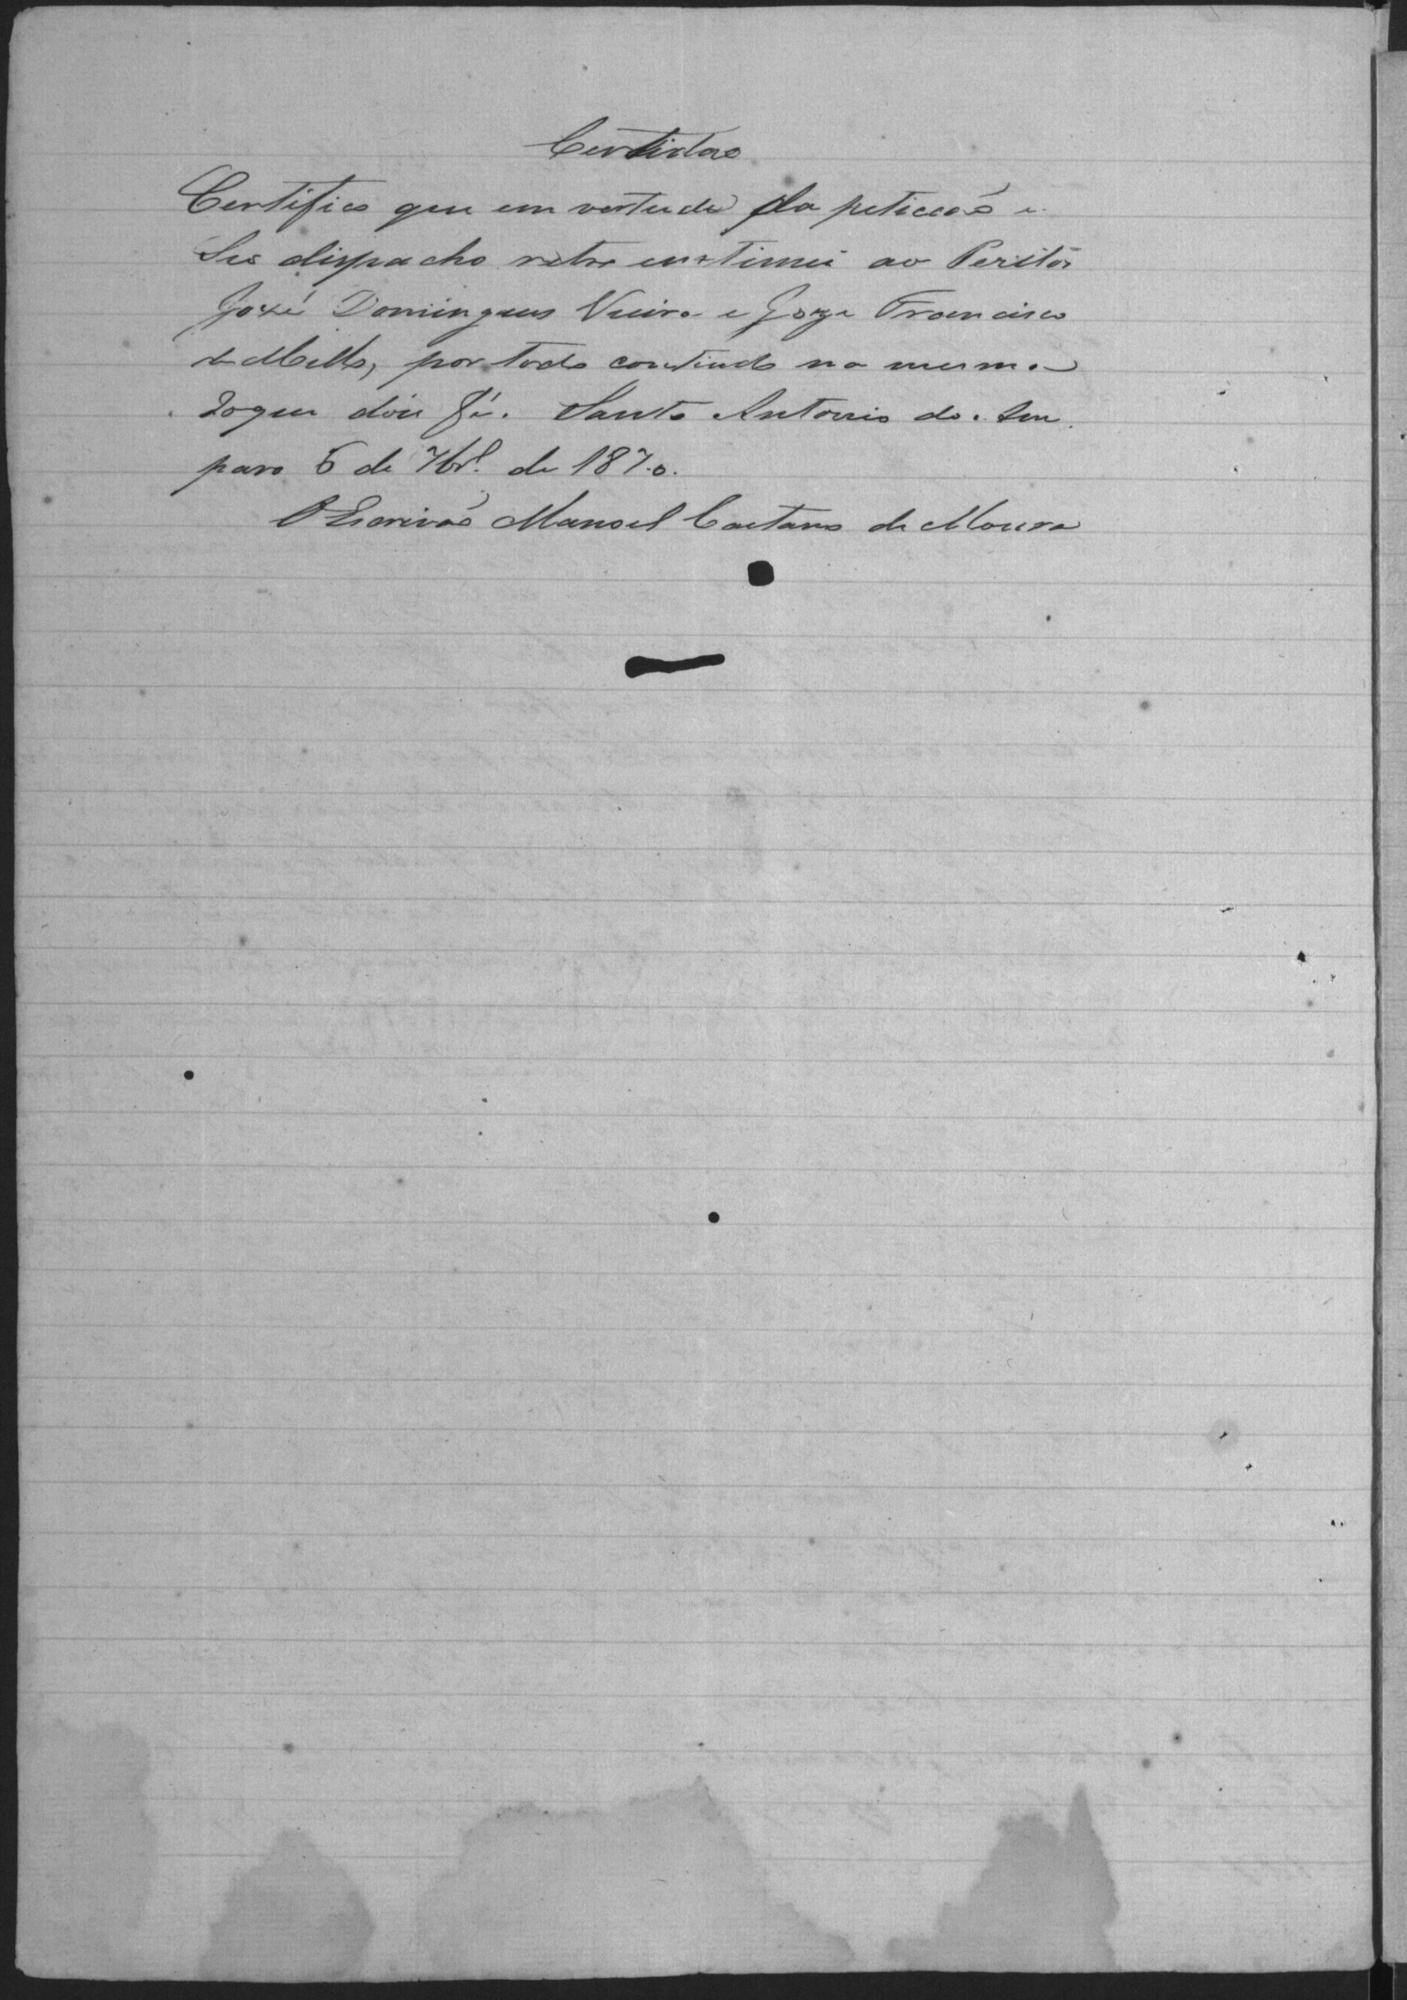 Certidão
Certifico que em vertude da peticcaõ e
seo dispacho retro entimei ao Peritos
José Domingues Vieira e Jorge Francisco
de Mello, por todo contiudo na mesma
doque dou fé. Santo Antonio do Am
paro 6 de 7br.º de 1870.
O Escrivaõ Manoel Caetano de Moura